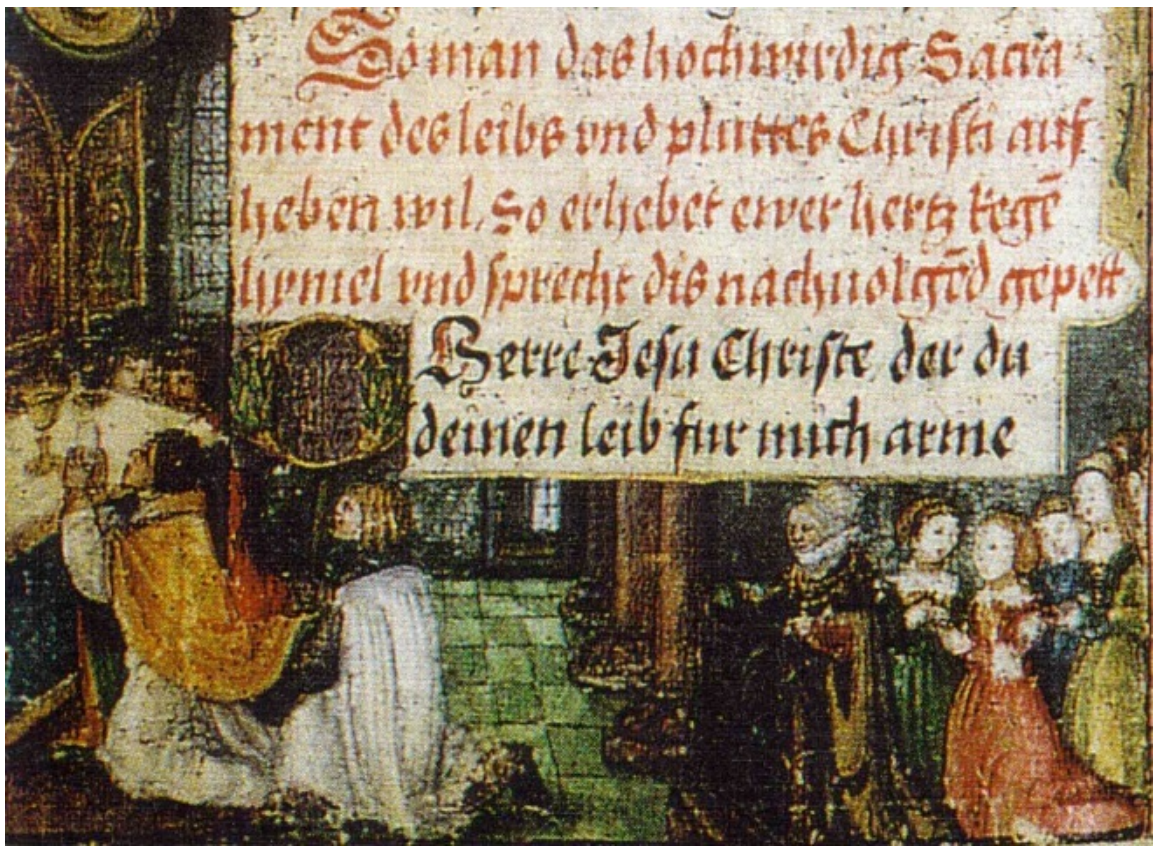 So man das hochwirdig Sacra
ment des leibs vnd pluttes Christi auf
heben wil, so erhebet ewer hertz kegē
hymel vnd sprecht dis nachuolgēd gepett
O Herre Jesu Christe der du
deinen leib fur mich arme